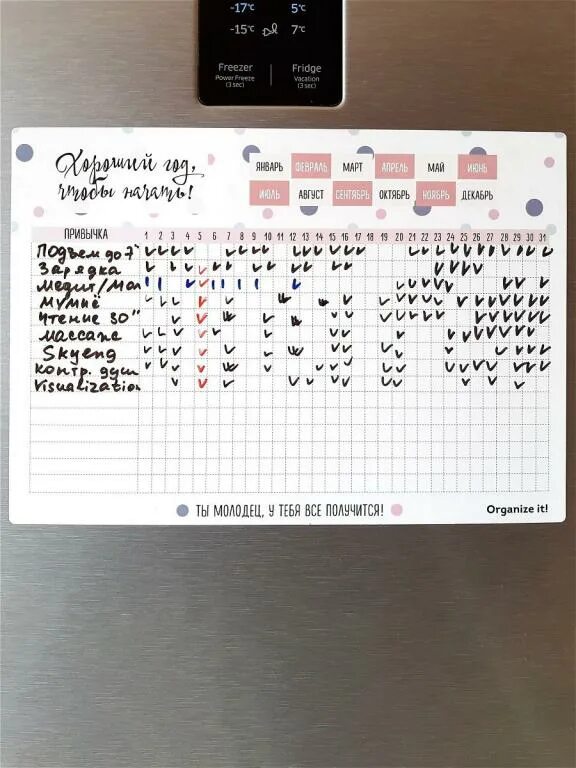 -17°C 5°C
-15°C 7°C
Freezer Fridge
Power Freeze Vacation
(3 sec) (3 sec)
Хороший год,
чтобы начать!
ЯНВАРЬ ФЕВРАЛЬ МАРТ АПРЕЛЬ МАЙ ИЮНЬ
ИЮЛЬ АВГУСТ СЕНТЯБРЬ ОКТЯБРЬ НОЯБРЬ ДЕКАБРЬ
ПРИВЫЧКА 1 2 3 4 5 6 7 8 9 10 11 12 13 14 15 16 17 18 19 20 21 22 23 24 25 26 27 28 29 30 31
Подъем до 7
Зарядка
Медит/Мол
Мумиё
Чтение 30"
Массаж
Skyeng
контр. душ
Visualization
ТЫ МОЛОДЕЦ, У ТЕБЯ ВСЕ ПОЛУЧИТСЯ!
Organize it!